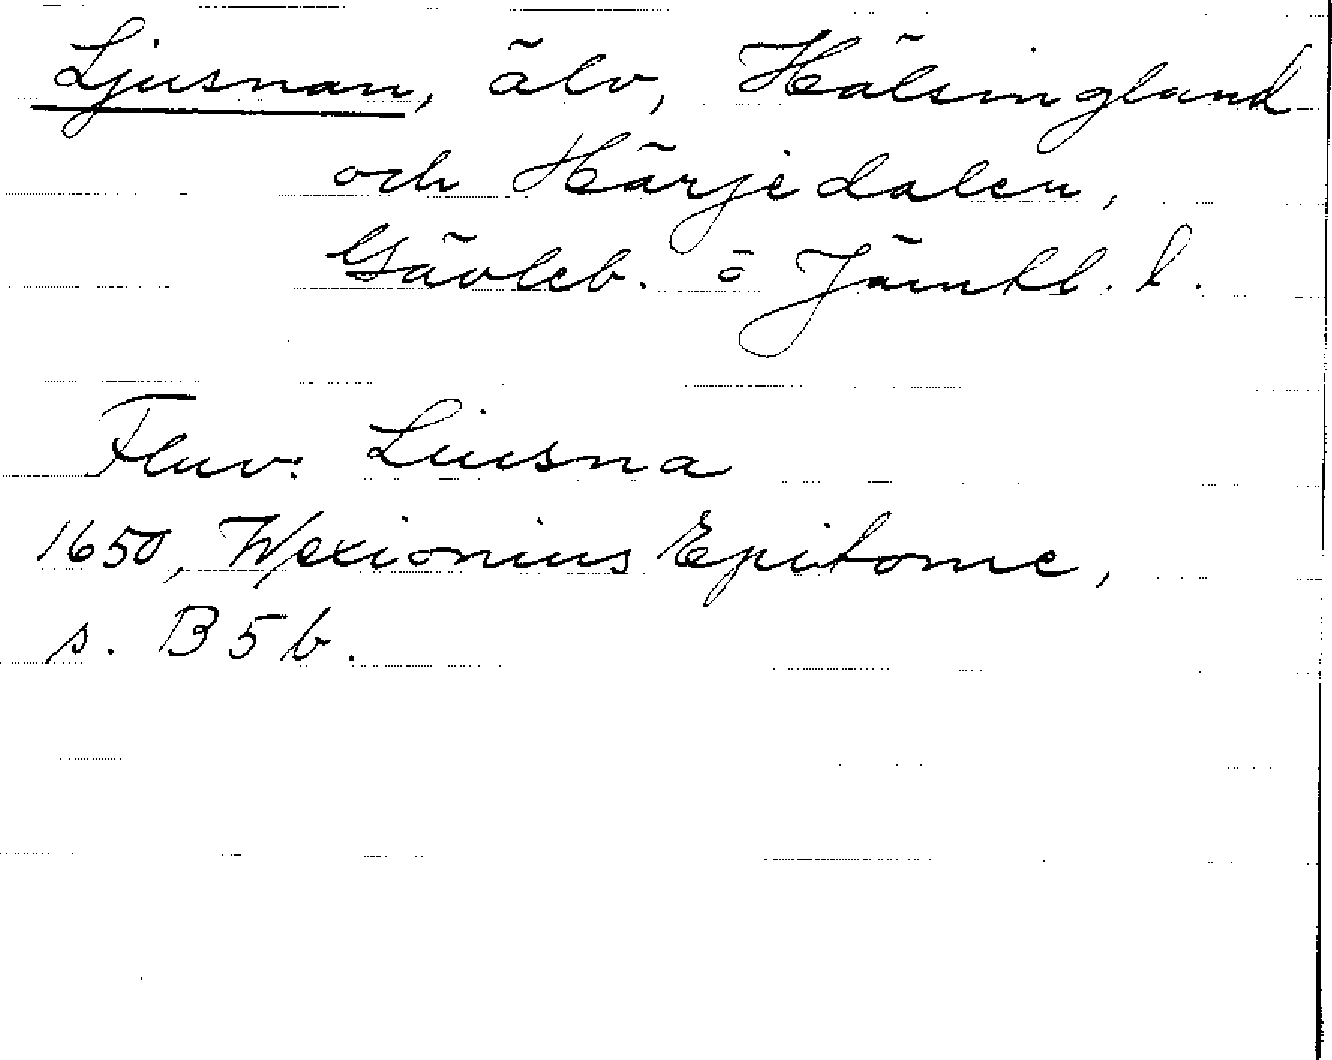 Ljusnan, älv, Hälsingland
och Härjedalen,
Gävleb. o Jämtl. l.
Fluv: Liusna
1650, Wexionius Epitome,
s. B 5 b.